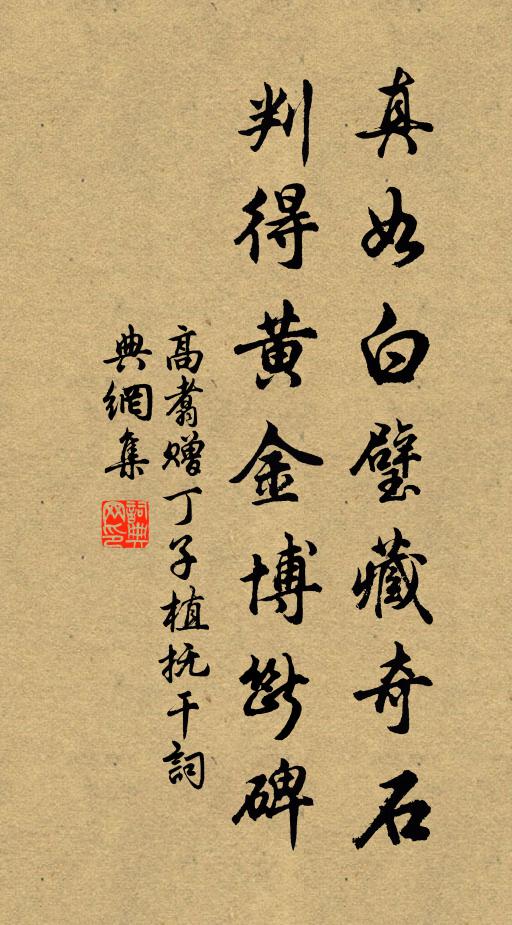 真如白璧藏奇石
判得黃金博斷碑
高翥赠丁子植抚干詞
典網集
詞典
网印